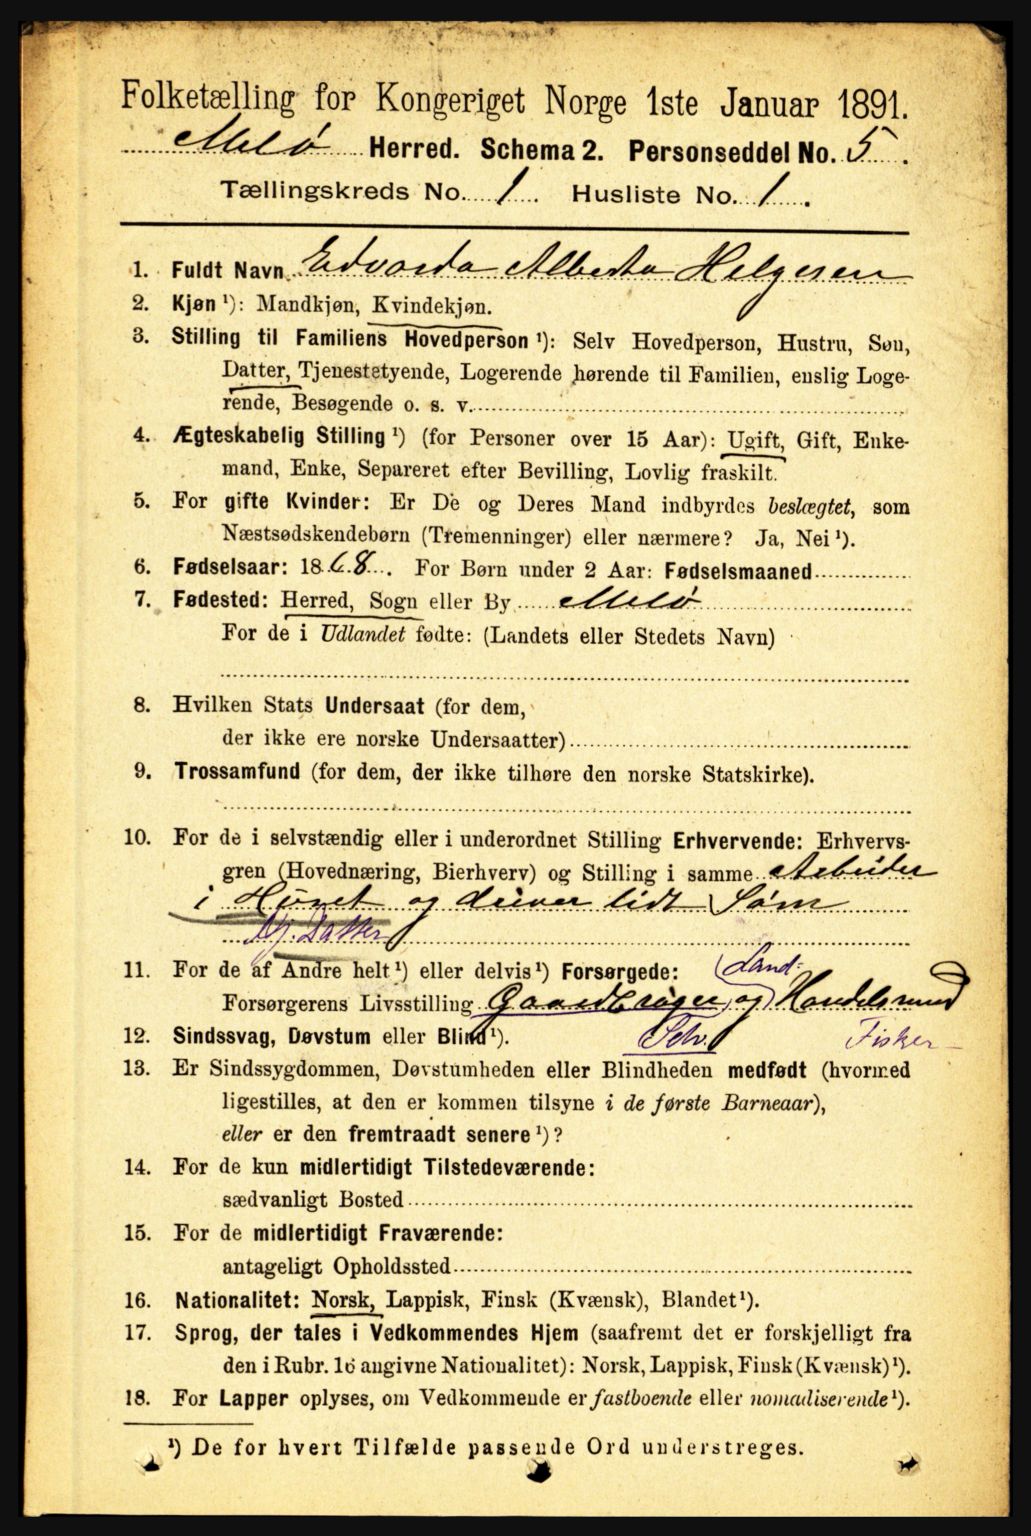 Folketælling for Kongeriget Norge 1ste Januar 1891.
Melø Herred. Schema 2. Personseddel No. 5.
Tællingskreds No. 1. Husliste No. 1.
1. Fuldt Navn Edvarda Alberta Helgesen
2. Kjøn ¹): Mandkjøn, Kvindekjøn.
3. Stilling til Familiens Hovedperson ¹): Selv Hovedperson, Hustru, Søn,
Datter, Tjenestetyende, Logerende hørende til Familien, enslig Loge-
rende, Besøgende o. s. v.
4. Ægteskabelig Stilling ¹) (for Personer over 15 Aar): Ugift, Gift, Enke-
mand, Enke, Separeret efter Bevilling, Lovlig fraskilt.
5. For gifte Kvinder: Er De og Deres Mand indbyrdes beslægtet, som
Næstsødskendebørn (Tremenninger) eller nærmere? Ja, Nei ¹).
6. Fødselsaar: 1868. For Børn under 2 Aar: Fødselsmaaned
7. Fødested: Herred, Sogn eller By Melø
For de i Udlandet fødte: (Landets eller Stedets Navn)
8. Hvilken Stats Undersaat (for dem,
der ikke ere norske Undersaatter)
9. Trossamfund (for dem, der ikke tilhøre den norske Statskirke).
10. For de i selvstændig eller i underordnet Stilling Erhvervende: Erhvervs-
gren (Hovednæring, Bierhverv) og Stilling i samme Arbeider
i Huset og driver lidt Søm
Gj. Datter
11. For de af Andre helt ¹) eller delvis ¹) Forsørgede: Land-
Forsørgerens Livsstilling Gaardbruger og Handelsmand
12. Sindssvag, Døvstum eller Blind ¹). Selv. Fisker
13. Er Sindssygdommen, Døvstumheden eller Blindheden medfødt (hvormed
ligestilles, at den er kommen tilsyne i de første Barneaar),
eller er den fremtraadt senere ¹)?
14. For de kun midlertidigt Tilstedeværende:
sædvanligt Bosted
15. For de midlertidigt Fraværende:
antageligt Opholdssted
16. Nationalitet: Norsk, Lappisk, Finsk (Kvænsk), Blandet ¹).
17. Sprog, der tales i Vedkommendes Hjem (saafremt det er forskjelligt fra
den i Rubr. 16 angivne Nationalitet): Norsk, Lappisk, Finsk (Kvænsk) ¹).
18. For Lapper oplyses, om Vedkommende er fastboende eller nomadiserende ¹).
¹) De for hvert Tilfælde passende Ord understreges.